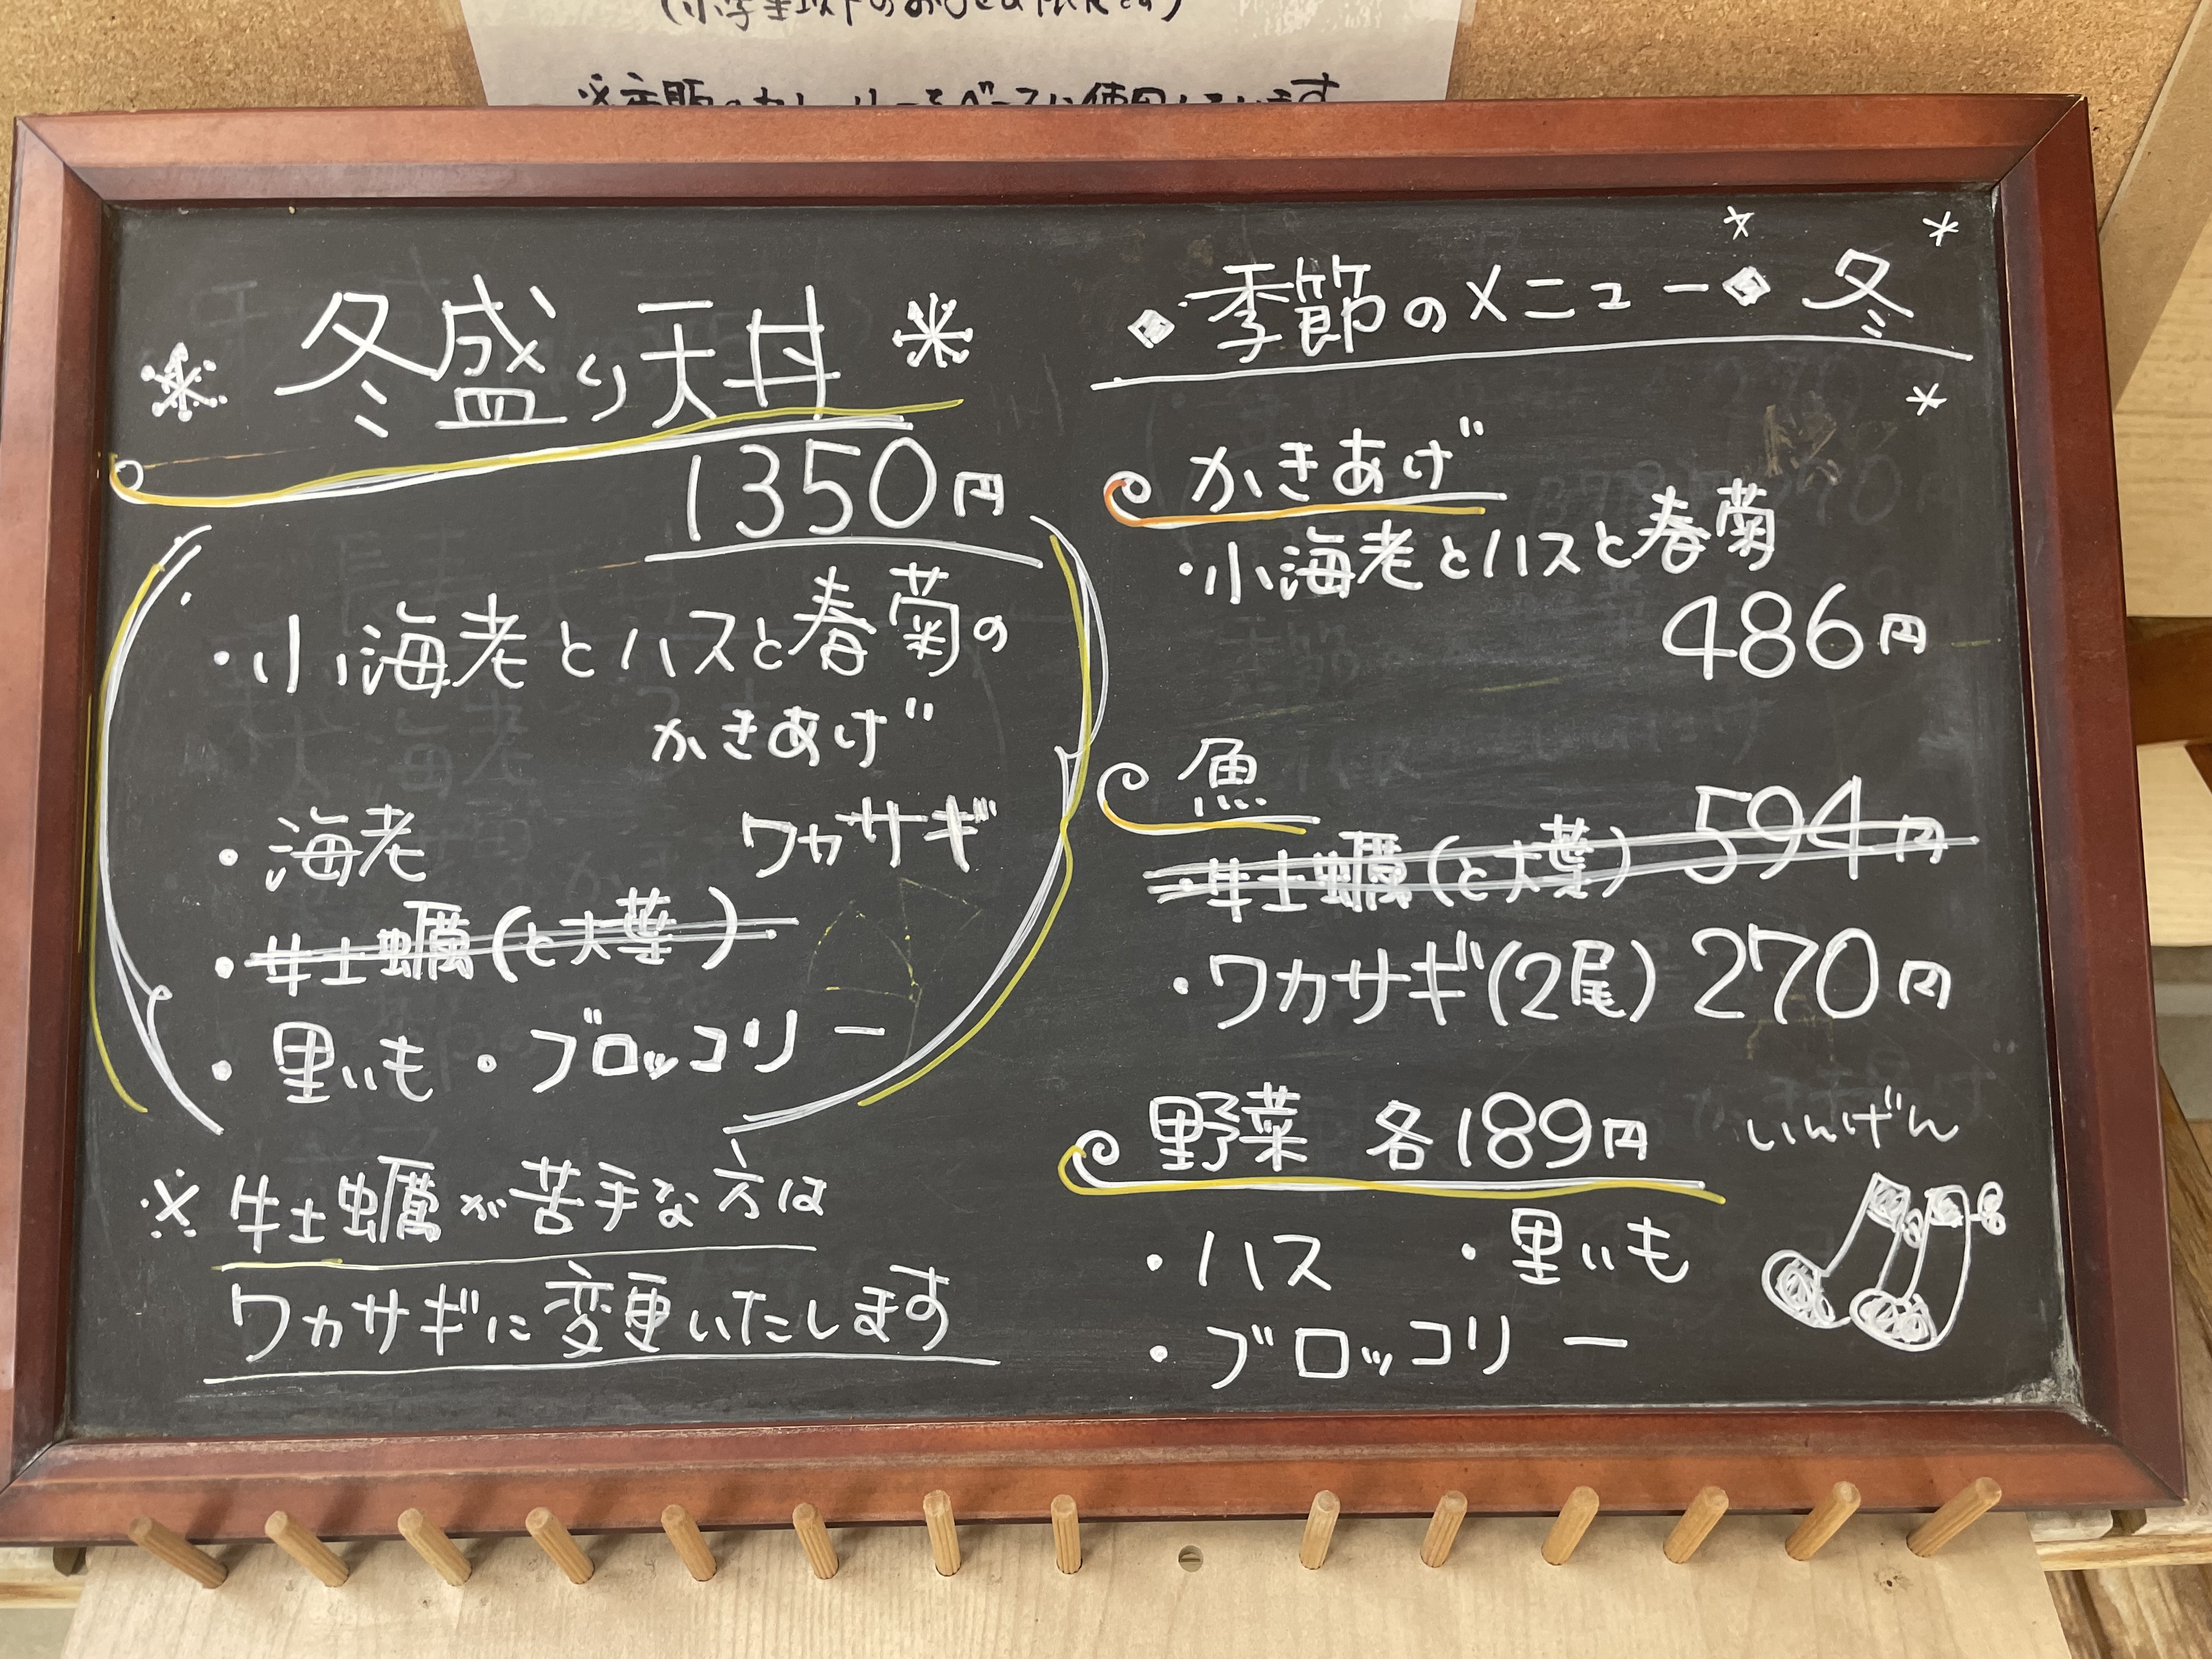 ※主販のカレールーをベースに使用しています
冬盛り天丼
1350円
・小海老とハスと春菊の
かきあげ
・海老 ワカサギ
・牡蠣(と大葉)
・里いも・ブロッコリー
※牡蠣が苦手な方は
ワカサギに変更いたします
季節のメニュー 冬
かきあげ
・小海老とハスと春菊
486円
魚
・牡蠣(と大葉) 594円
・ワカサギ(2尾) 270円
野菜 各189円 いんげん
・ハス ・里いも
・ブロッコリー